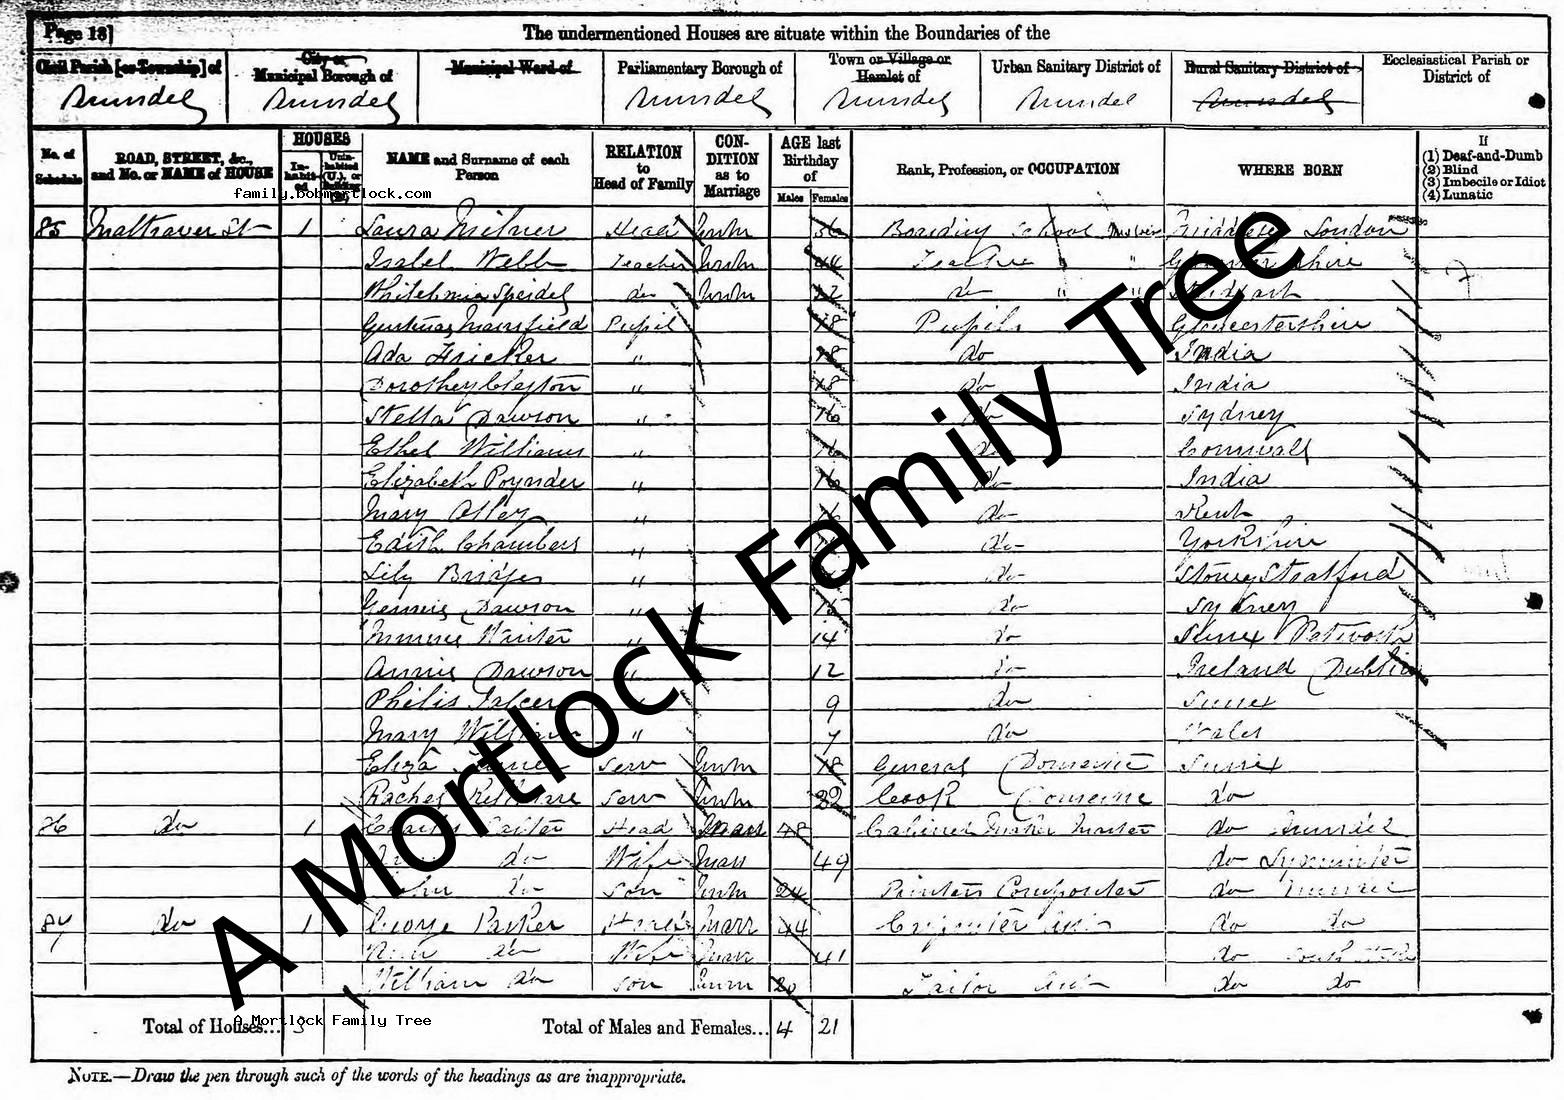 Page 18]
The undermentioned Houses are situate within the Boundaries of the
Civil Parish [or Township] of
City or Municipal Borough of
Municipal Ward of
Parliamentary Borough of
Town or Village or Hamlet of
Urban Sanitary District of
Rural Sanitary District of
Ecclesiastical Parish or District of
Arundel Arundel Arundel Arundel Arundel Arundel
No. of Schedule
ROAD, STREET, &c., and No. or NAME of HOUSE
HOUSES
Inhabited
Uninhabited (U.), or Building (B.)
NAME and Surname of each Person
RELATION to Head of Family
CONDITION as to Marriage
AGE last Birthday of
Males Females
Rank, Profession, or OCCUPATION
WHERE BORN
If
(1) Deaf-and-Dumb
(2) Blind
(3) Imbecile or Idiot
(4) Lunatic
family.bobmortlock.com
85 Maltraver St 1 Laura Milner Head Unm 56 Boarding School London
Isabel Webb Teacher Unm 44 Teacher "
Speidel do Unm do " "
Mansfield Pupil 18 Pupil Gloucestershire
Ada Fricker " 18 do India
Dorothey Clayton " 18 do India
Stella Dawson " 16 do Sydney
Ethel Williams " 16 do Cornwall
Elizabeth Poynder " 16 do India
Mary " do Kent
Edith Chambers " do Yorkshire
Lily Bridges " do Stoney Stratford
Dawson " 15 do Sydney
" 14 do Sussex Petworth
Annie Dawson " 12 do Ireland Dublin
Philis " 9 do Sussex
Mary William " 7 do Wales
Eliza Serv Unm 18 General Domestic Sussex
Rachel Serv Unm 22 Cook Domestic do
86 do 1 Charles Head Marr 48 Cabinet Maker Master do Arundel
do Wife Marr 49 do Lyminster
John do Son Unm 24 Printers Compositor do Arundel
87 do 1 George Parker Head Marr 44 Carpenter do do
do Wife Marr 41 do
William do Son Unm 20 Tailor do do
A Mortlock Family Tree
Total of Houses... 3
A Mortlock Family Tree
Total of Males and Females... 4 21
NOTE.—Draw the pen through such of the words of the headings as are inappropriate.